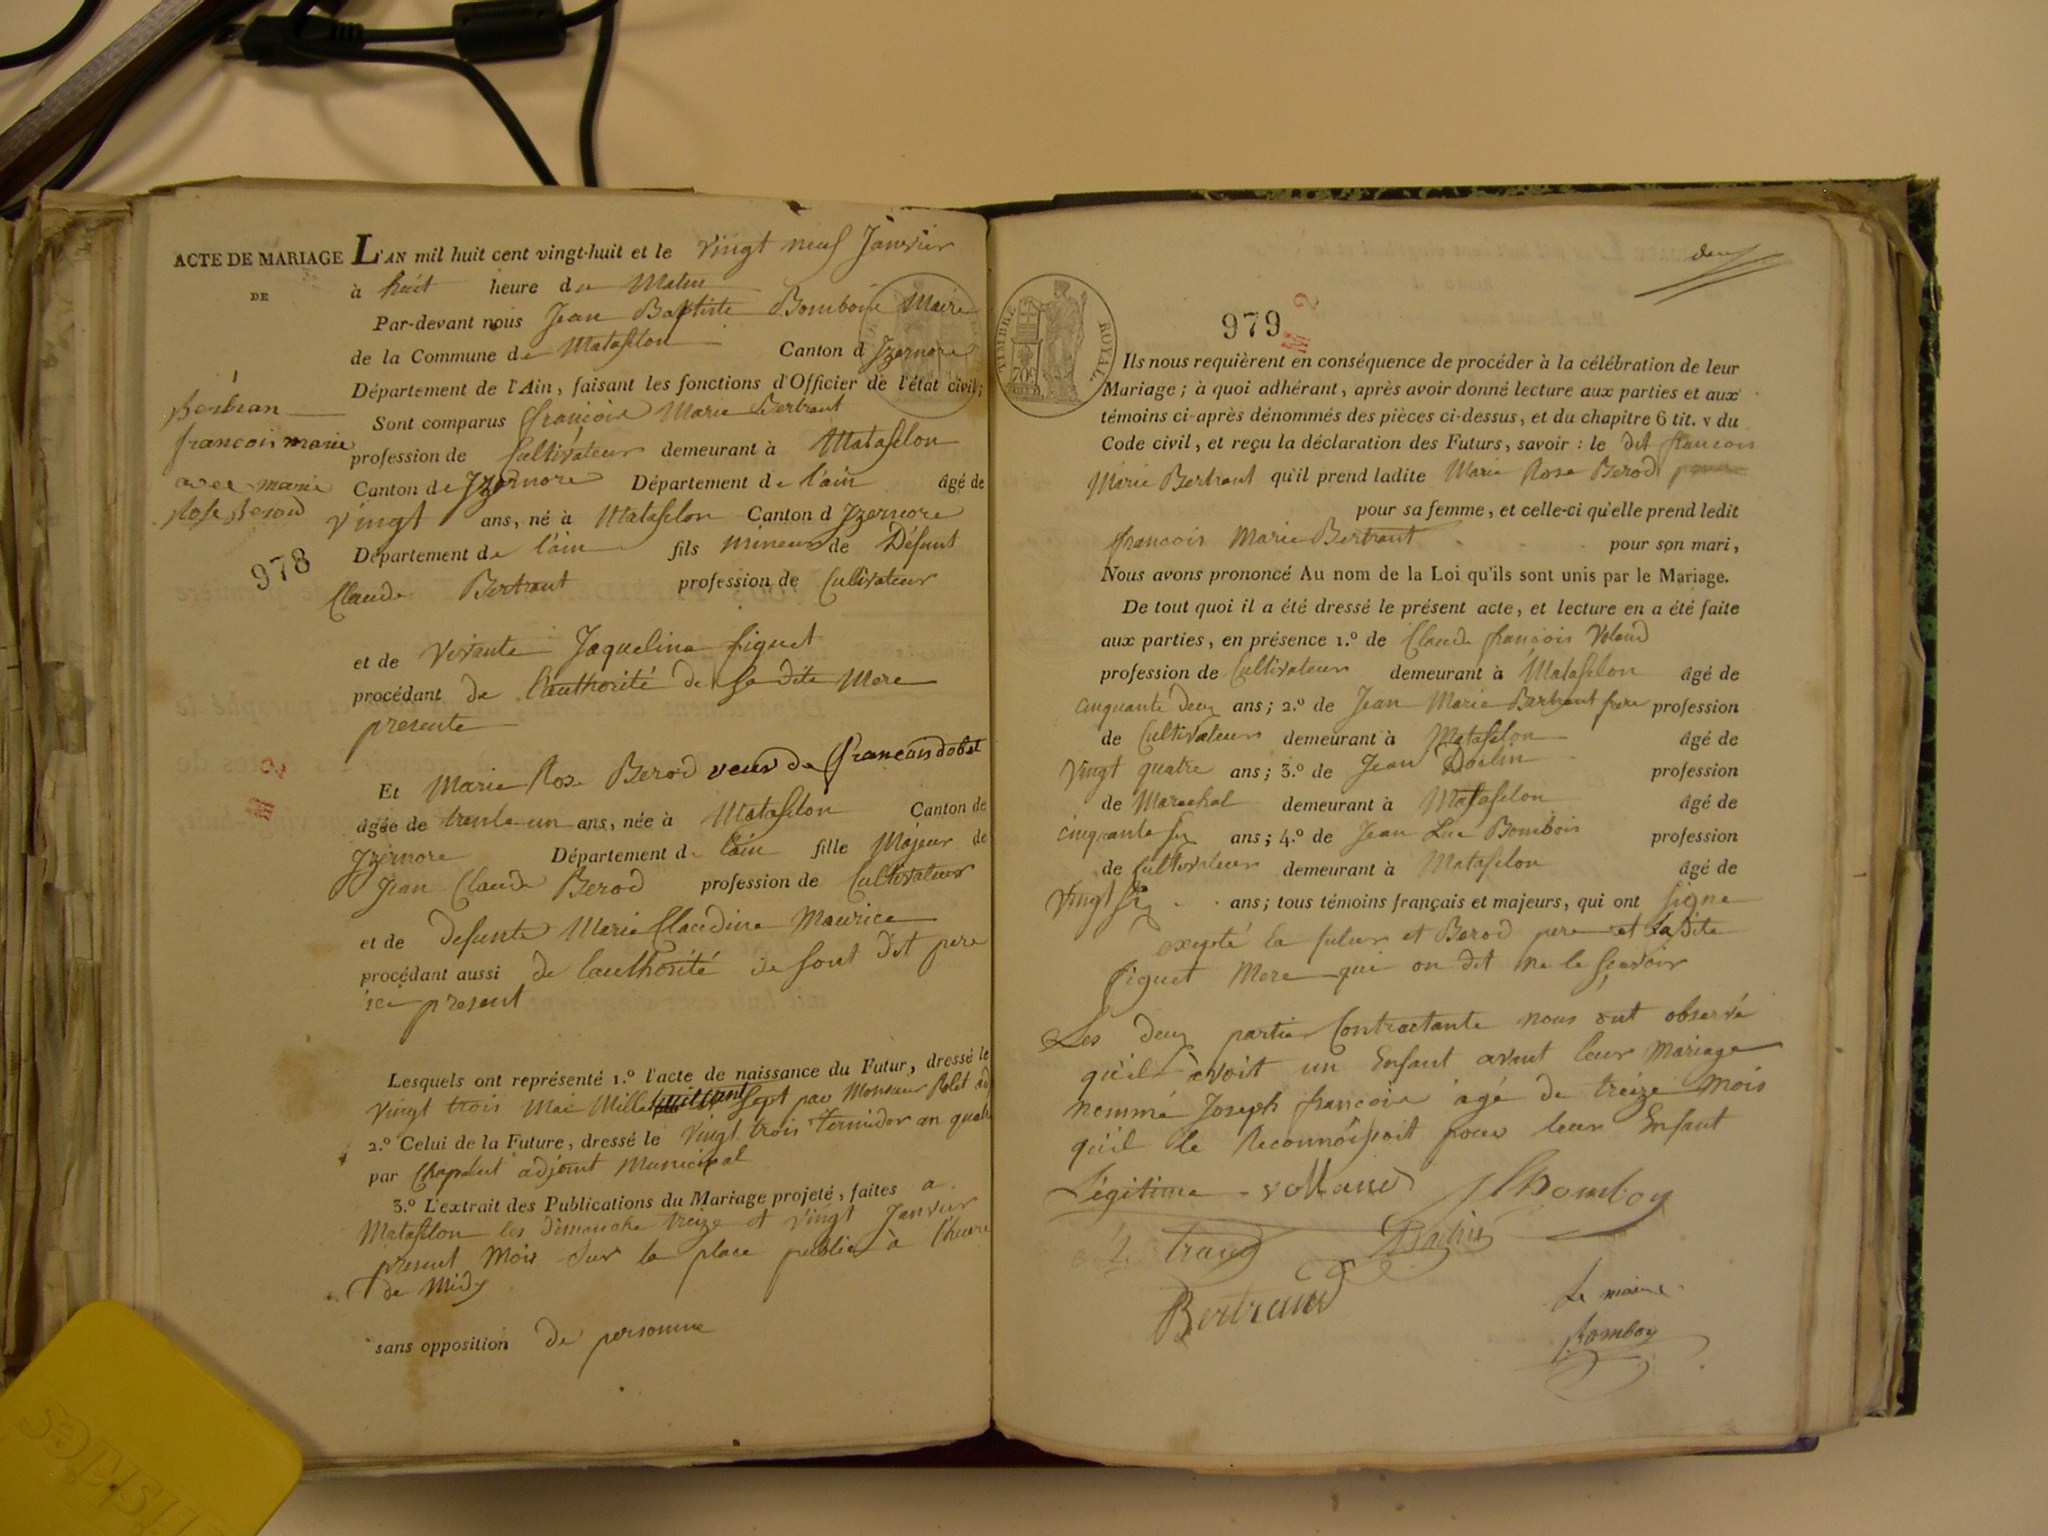 ACTE DE MARIAGE
DE
Bertran
francois marie
avec marie
Rose Berod
978
L'AN mil huit cent vingt-huit et le vingt neuf Janvier
à huit heure du Matin
Par-devant nous Jean Baptiste Bomboie Maire
de la Commune de Matafelon Canton d Jzernore
Département de l'Ain, faisant les fonctions d'Officier de l'état civil;
Sont comparus francois Marie Bertrant
profession de Cultivateur demeurant à Matafelon
Canton de Jzernore Département de l'ain âgé de
vingt ans, né à Matafelon Canton d Jzernore
Département de l'ain fils mineur de Défunt
Claude Bertrant profession de Cultivateur
et de vivante Jaqueline figuet
procédant de l'authorité de sa dite Mere
presente
Et Marie Rose Berod veuv de francois dobet
âgée de trente un ans, née à Matafelon Canton de
Jzernore Département de l'ain fille Majeur de
Jean Claude Berod profession de Cultivateur
et de defunte Marie Claudine Maurice
procédant aussi de l'authorité de sont dit pere
ici present
Lesquels ont représenté 1.º l'acte de naissance du Futur, dressé le
vingt trois Mai Mille huit cent sept par Monsieur Rolet adj
2.º Celui de la Future, dressé le vingt trois Termidor an quatr
par Chapelut adjoint Municipal
3.º L'extrait des Publications du Mariage projeté, faites a
Matafelon les dimanche treize et vingt Janvier
present Mois sur la place public à l'heure
de Midy
sans opposition de personne
deux
TIMBRE ROYAL
70c
979
M 2
Ils nous requièrent en conséquence de procéder à la célébration de leur
Mariage; à quoi adhérant, après avoir donné lecture aux parties et aux
témoins ci-après dénommés des pièces ci-dessus, et du chapitre 6 tit. v du
Code civil, et reçu la déclaration des Futurs, savoir: le dit francois
Marie Bertrant qu'il prend ladite Marie Rose Berod
pour sa femme, et celle-ci qu'elle prend ledit
francois Marie Bertrant pour son mari,
Nous avons prononcé Au nom de la Loi qu'ils sont unis par le Mariage.
De tout quoi il a été dressé le présent acte, et lecture en a été faite
aux parties, en présence 1.º de Claude francois Voland
profession de Cultivateur demeurant à Matafelon âgé de
cinquante deux ans; 2.º de Jean Marie Bertrant frere profession
de Cultivateur demeurant à Matafelon âgé de
Vingt quatre ans; 3.º de Jean profession
de Marechal demeurant à Matafelon âgé de
cinquante six ans; 4.º de Jean Luc Bombois profession
de Cultivateur demeurant à Matafelon âgé de
Vingt six ans; tous témoins français et majeurs, qui ont signe
exepté la futur et Berod pere et la dite
figuet Mere qui on dit ne le scavoir
Les deux partie Contractante nous ont observé
qu'il avoit un Enfant avant leur Mariage
nommé Joseph francois agé de treize mois
qu'il le Reconnoissoit pour leur Enfant
Légitime volland JLBomboy
Bertrand
Le maire
Bomboy